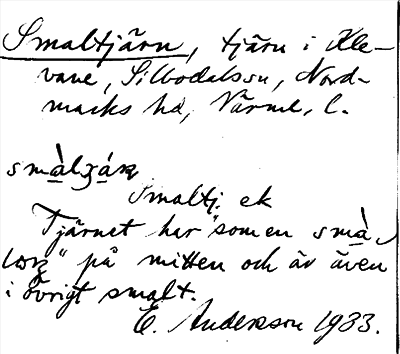 Smaltjärn, tjärn i Kle-
vane, Silbodalssn, Nord-
marks hd, Värml. l.
smàlʒáɳ
Smaltj. ek
Tjärnet har "som en smà-
" på mitten och är även
i övrigt smalt.
E. Andersson 1933.